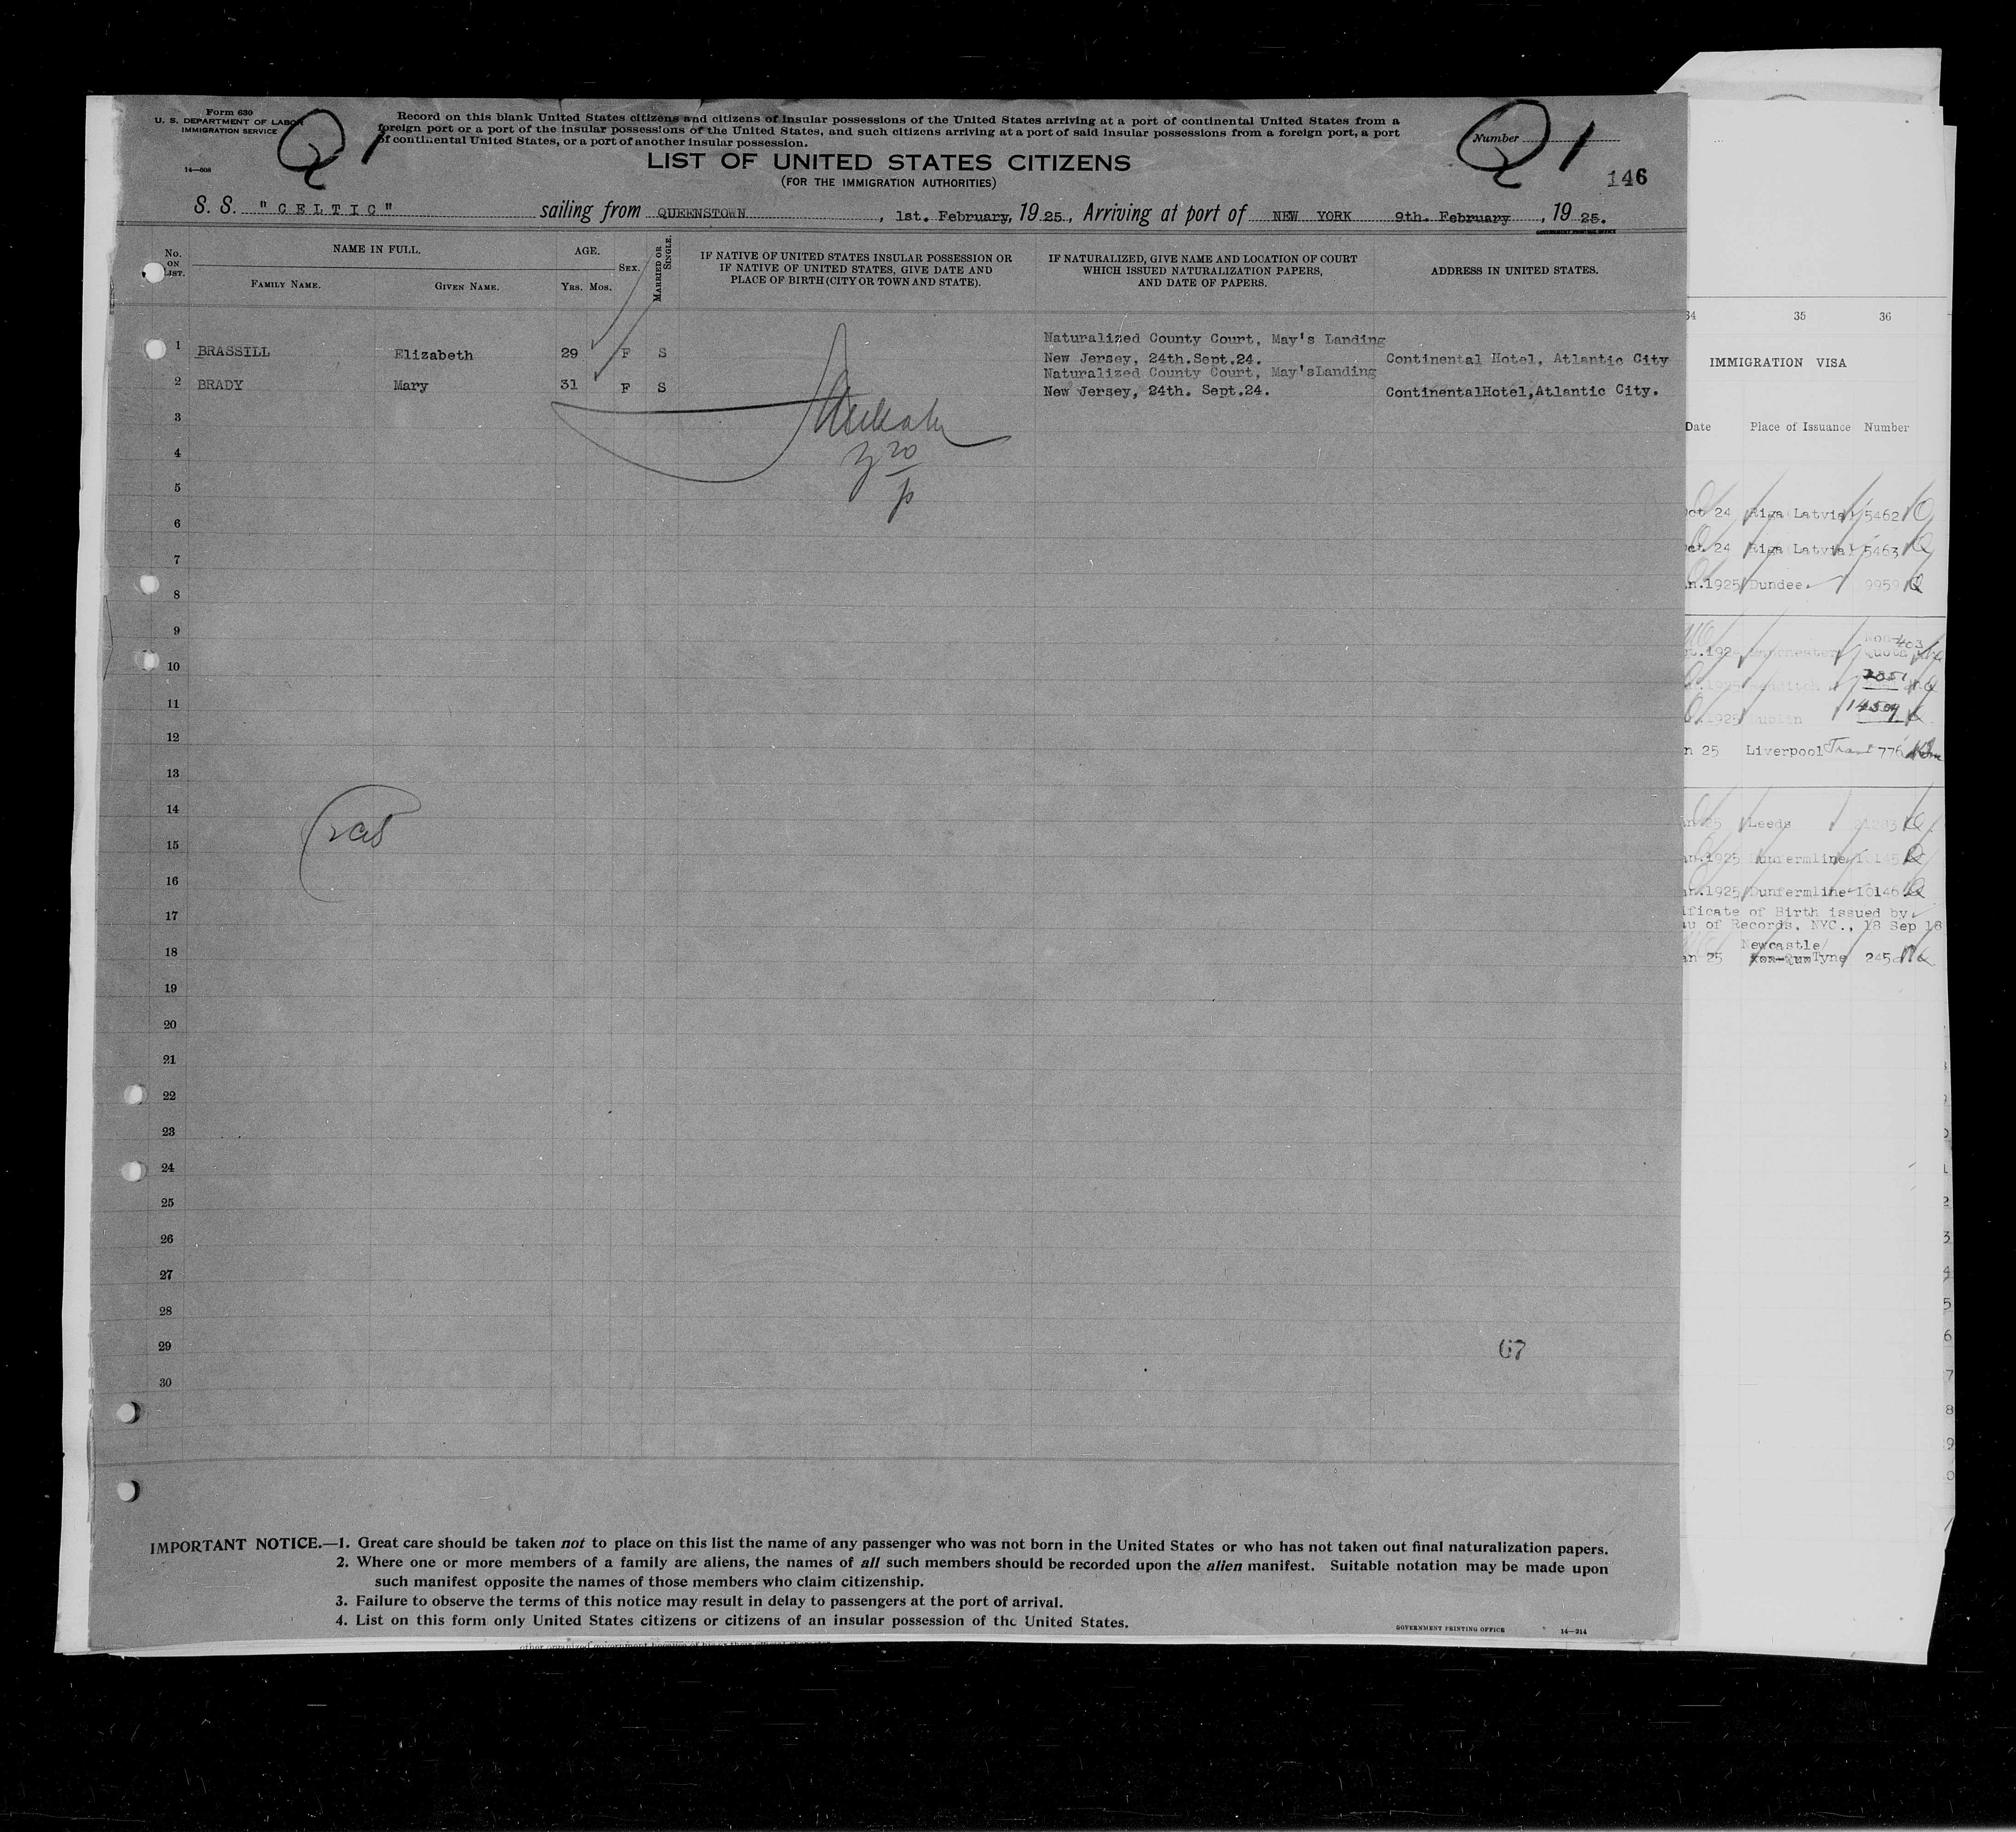 Form 630
U. S. DEPARTMENT OF LABOR
IMMIGRATION SERVICE
14—608
Q 1
Record on this blank United States citizens and citizens of insular possessions of the United States arriving at a port of continental United States from a
foreign port or a port of the insular possessions of the United States, and such citizens arriving at a port of said insular possessions from a foreign port, a port
of continental United States, or a port of another insular possession.
Number
Q 1
LIST OF UNITED STATES CITIZENS
(FOR THE IMMIGRATION AUTHORITIES)
146
S. S. "CELTIC" sailing from QUEENSTOWN, 1st. February, 1925, Arriving at port of NEW YORK 9th. February, 1925.
GOVERNMENT PRINTING OFFICE
No. ON LIST.
NAME IN FULL.
FAMILY NAME. GIVEN NAME.
AGE.
YRS. MOS.
SEX.
MARRIED OR SINGLE.
IF NATIVE OF UNITED STATES INSULAR POSSESSION OR
IF NATIVE OF UNITED STATES, GIVE DATE AND
PLACE OF BIRTH (CITY OR TOWN AND STATE).
IF NATURALIZED, GIVE NAME AND LOCATION OF COURT
WHICH ISSUED NATURALIZATION PAPERS,
AND DATE OF PAPERS.
ADDRESS IN UNITED STATES.
Naturalized County Court, May's Landing
1 BRASSILL Elizabeth 29 F S New Jersey, 24th.Sept.24. Continental Hotel, Atlantic City
Naturalized County Court, May'sLanding
2 BRADY Mary 31 F S New Jersey, 24th. Sept.24. ContinentalHotel,Atlantic City.
3
4
5
6
7
8
9
10
11
12
13
14
15
16
17
18
19
20
21
22
23
24
25
26
27
28
29
30
67
IMPORTANT NOTICE.—1. Great care should be taken not to place on this list the name of any passenger who was not born in the United States or who has not taken out final naturalization papers.
2. Where one or more members of a family are aliens, the names of all such members should be recorded upon the alien manifest. Suitable notation may be made upon
such manifest opposite the names of those members who claim citizenship.
3. Failure to observe the terms of this notice may result in delay to passengers at the port of arrival.
4. List on this form only United States citizens or citizens of an insular possession of the United States.
GOVERNMENT PRINTING OFFICE 14—214
34 35 36
IMMIGRATION VISA
Date Place of Issuance Number
Oct 24 Riga Latvia 5462
Oct. 24 Riga Latvia 5463
1925 Dundee 9959
25 Liverpool 776
Leeds
1925 Dunfermline 10145
1925 Dunfermline 10146
ificate of Birth issued by
of Records, NYC., 18 Sep 18
Newcastle
25 Tyne 245